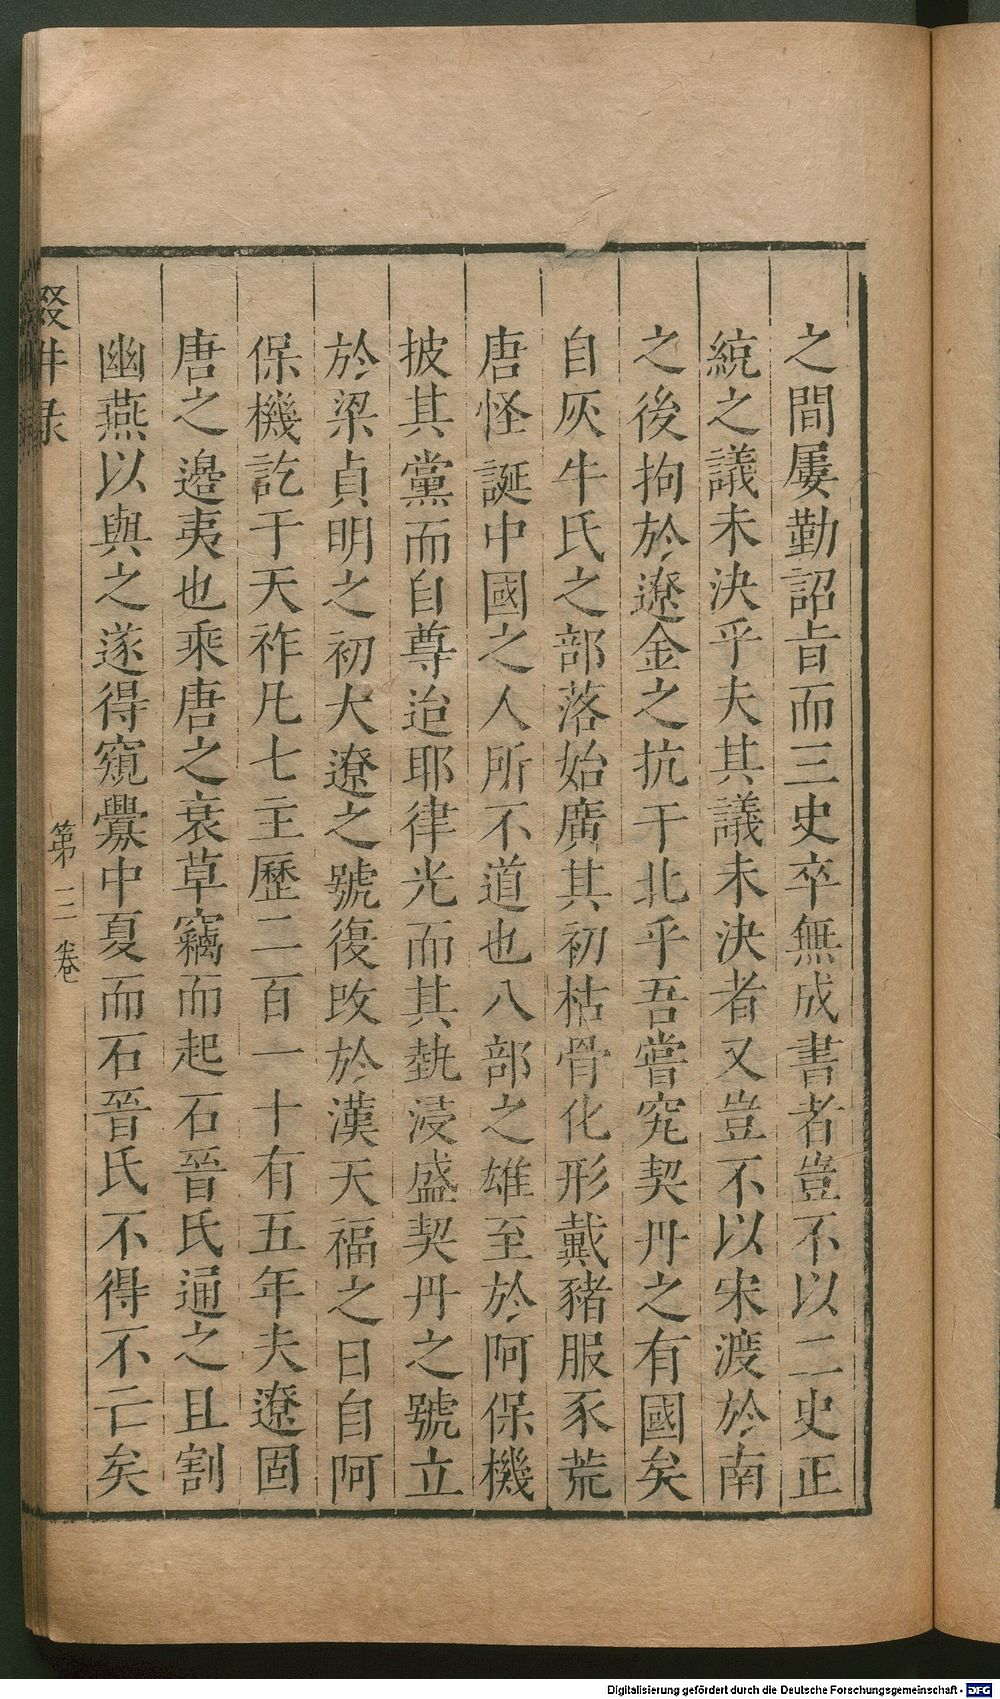 之間屢勤詔旨而三史卒無成書者豈不以二史正
統之議未決乎夫其議未決者又豈不以宋渡於南
之後拘於遼金之抗于北乎吾嘗究契丹之有國矣
自灰牛氏之部落始廣其初枯骨化形戴豬服豕荒
唐怪誕中國之人所不道也八部之雄至於阿保機
披其黨而自尊迨耶律光而其埶浸盛契丹之號立
於梁貞明之初大遼之號復改於漢天福之日自阿
保機訖于天祚凡七主歷二百一十有五年夫遼固
唐之邊夷也乘唐之衰草竊而起石晉氏通之且割
幽燕以與之遂得窺釁中夏而石晉氏不得不亡矣
輟耕录
第三卷
Digitalisierung gefördert durch die Deutsche Forschungsgemeinschaft - DFG